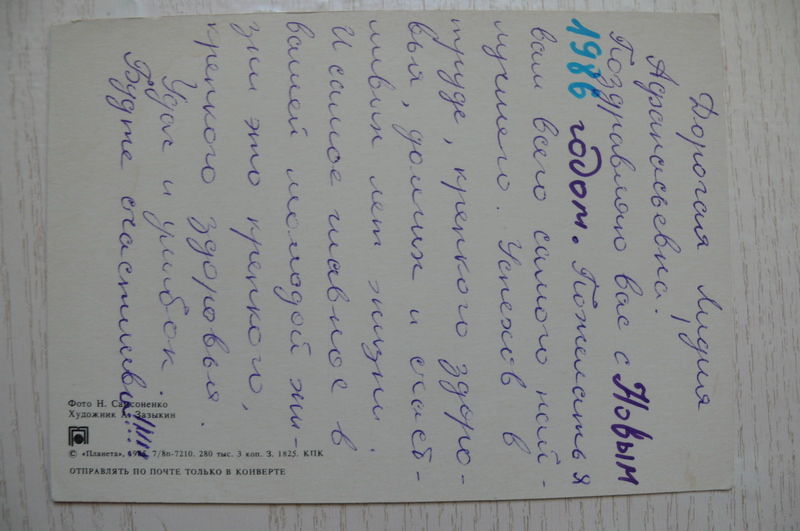 Дорогая Лидия
Афанасьевна!
Поздравляю вас с Новым
1986 годом. Пожелать я
вам всего самого наи-
лучшего. Успехов в
труде, крепкого здоро-
вья, долгих и счаст-
ливых лет жизни.
И самое главное в
вашей молодой жи-
зни это крепкого,
крепкого здоровья.
Удач и улыбок
Будте счастливы!!!!
Фото Н. Самсоненко
Художник А. Зазыкин
© «Планета», 1985. 7/8п-7210. 280 тыс. 3 коп. З. 1825. КПК
ОТПРАВЛЯТЬ ПО ПОЧТЕ ТОЛЬКО В КОНВЕРТЕ